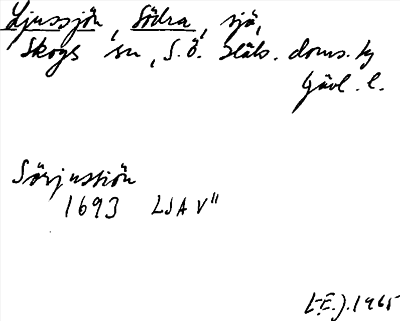 Ljussjön, Södra, sjö,
Skogs sn, S.Ö. Häls. doms. tg
Gävl. l.
Sörjussiön
1693 LSA V"
E.J. 1965